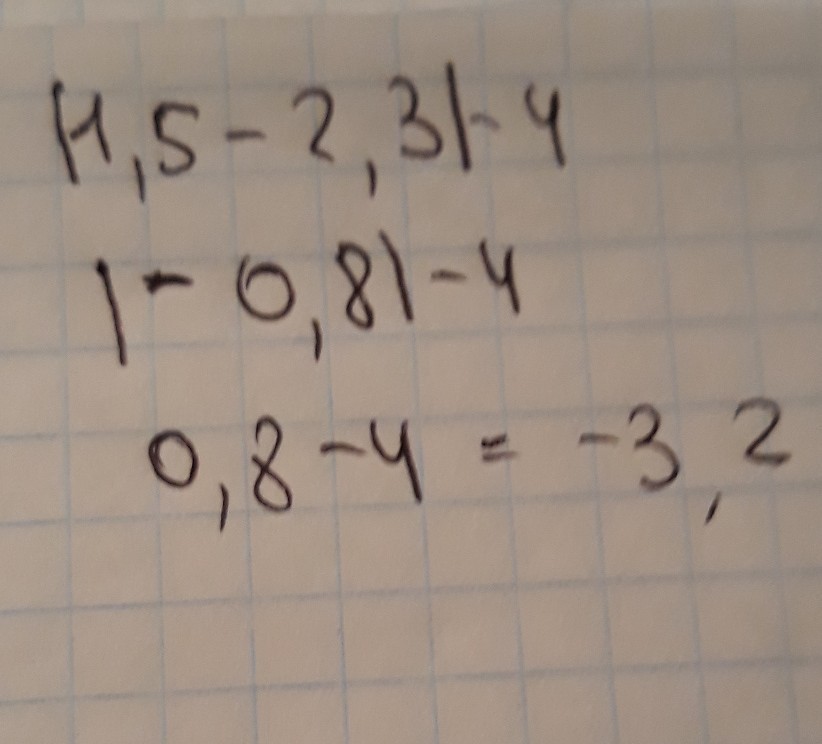 |1,5 - 2,3| - 4
|- 0,8| - 4
0,8 - 4 = -3,2